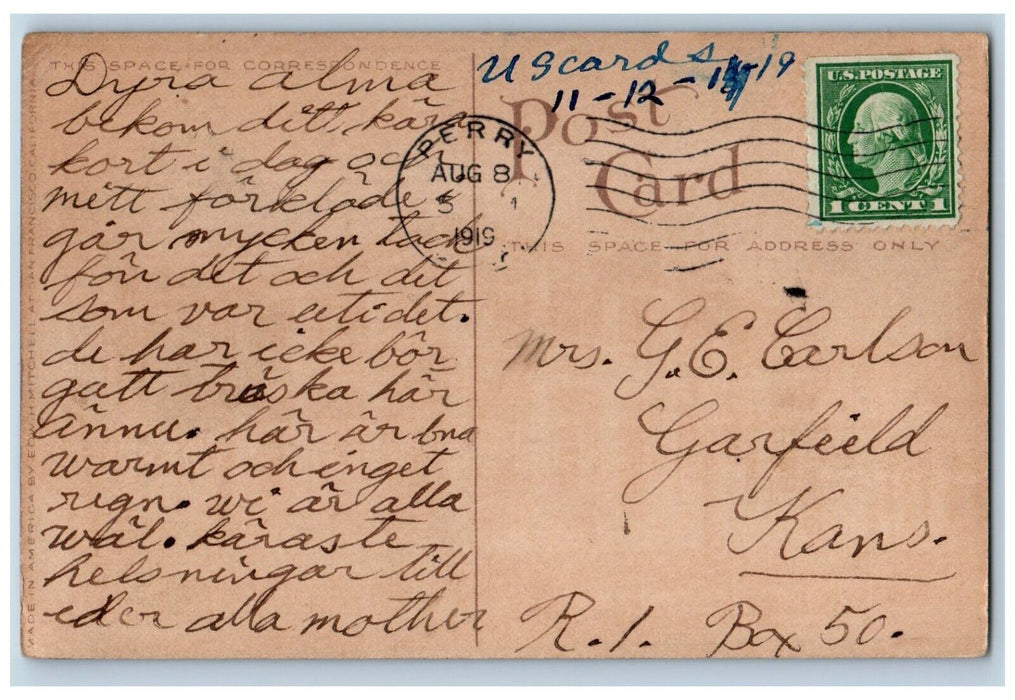 THIS SPACE FOR CORRESPONDENCE
Dyra alma
bekom ditt kära
kort i dag och
mitt förkläde i
går mycken tack
för det och det
som var uti det.
de har icke bör
gatt träska här
ännu. här är bra
warmt och inget
regn. wi är alla
wäl. käraste
helsningar till
eder alla mother
MADE IN AMERICA BY EDW. H. MITCHELL AT SAN FRANCISCO, CALIFORNIA
US cards
11-12-19
Post
Card
PERRY
AUG 8
1919
U.S. POSTAGE
1 CENT 1
THIS SPACE FOR ADDRESS ONLY
Mrs. G.E. Carlson
Garfield
Kans.
R.1. Box 50.